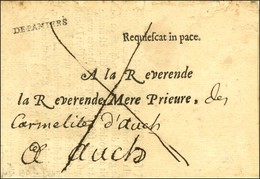 DE PAMIERS
Requiescat in pace.
A la Reverende
la Reverende Mere Prieure, des
Carmelites d'auch
A auch